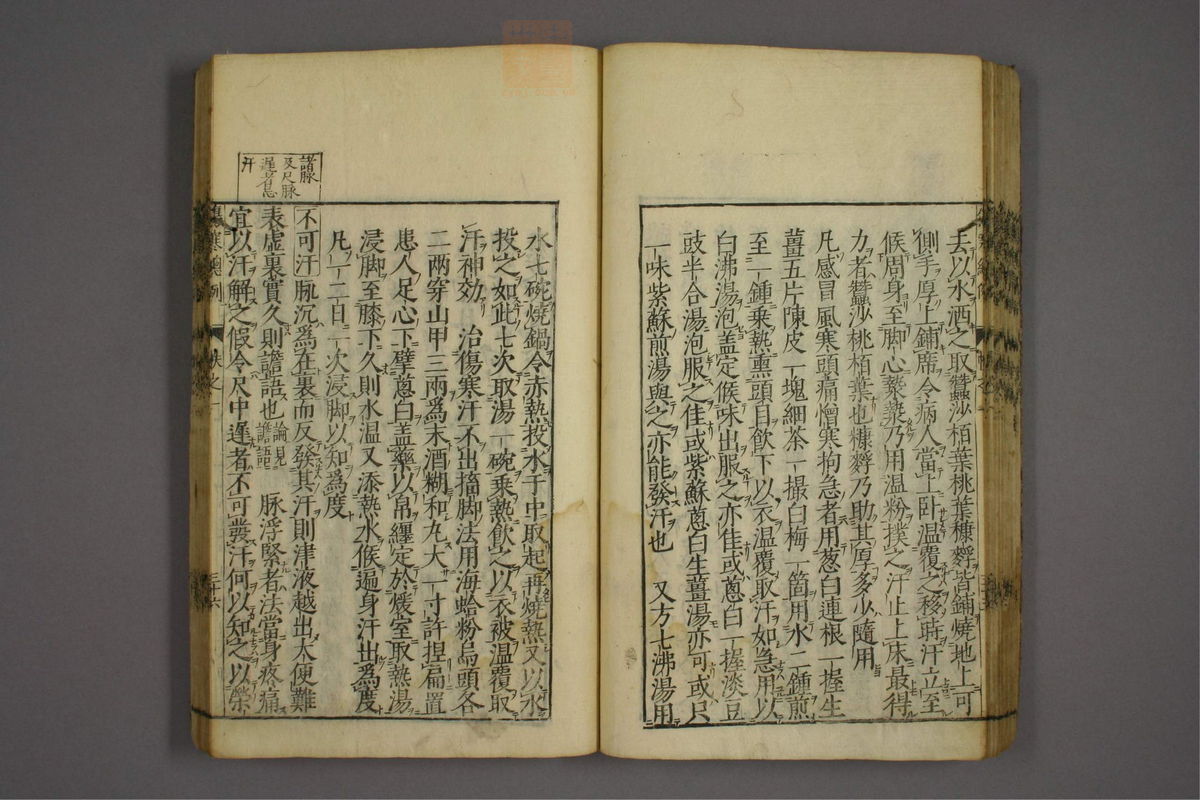 去以水洒之取蠶沙栢葉桃葉糠麩皆鋪燒地上可
側手厚上鋪席令病人當上卧温覆之移時汗立至
候周身至脚心漐漐乃用温粉撲之汗止上床最得
力者蠶沙桃栢葉也糠麩乃助其厚多少隨用
凡感冒風寒頭痛憎寒拘急者用葱白連根一握生
薑五片陳皮一塊細茶一撮白梅一箇用水二鍾煎
至一鍾乗熱熏頭目飲下以衣温覆取汗如急用以
白沸湯泡盖定候味出服之亦佳或葱白一握淡豆
豉半合湯泡服之佳或紫蘇葱白生薑湯亦可或只
一味紫蘇煎湯與之亦能發汗也　又方七沸湯用
水七碗燒鍋令赤熱投水于中取起再燒熱又以水
投之如此七次取湯一碗乗熱飲之以衣被温覆取
汗神効　治傷寒汗不出搐脚法用海蛤粉烏頭各
二兩穿山甲三兩爲末酒糊和丸大一寸許捏扁置
患人足心下擘葱白盖藥以帛纏定於煖室取熱湯
浸脚至膝下久則水温又添熱水候遍身汗出爲度
凡一二日一次浸脚以知爲度
諸脉
及尺脉
遲者忌
汗
不可汗脉沉爲在裏而反發其汗則津液越出大便難
表虚裏實久則譫語也
論見
譫語
脉浮緊者法當身疼痛
宜以汗解之假令尺中遲者不可發汗何以知之以榮
傷寒
卷之一
三十六